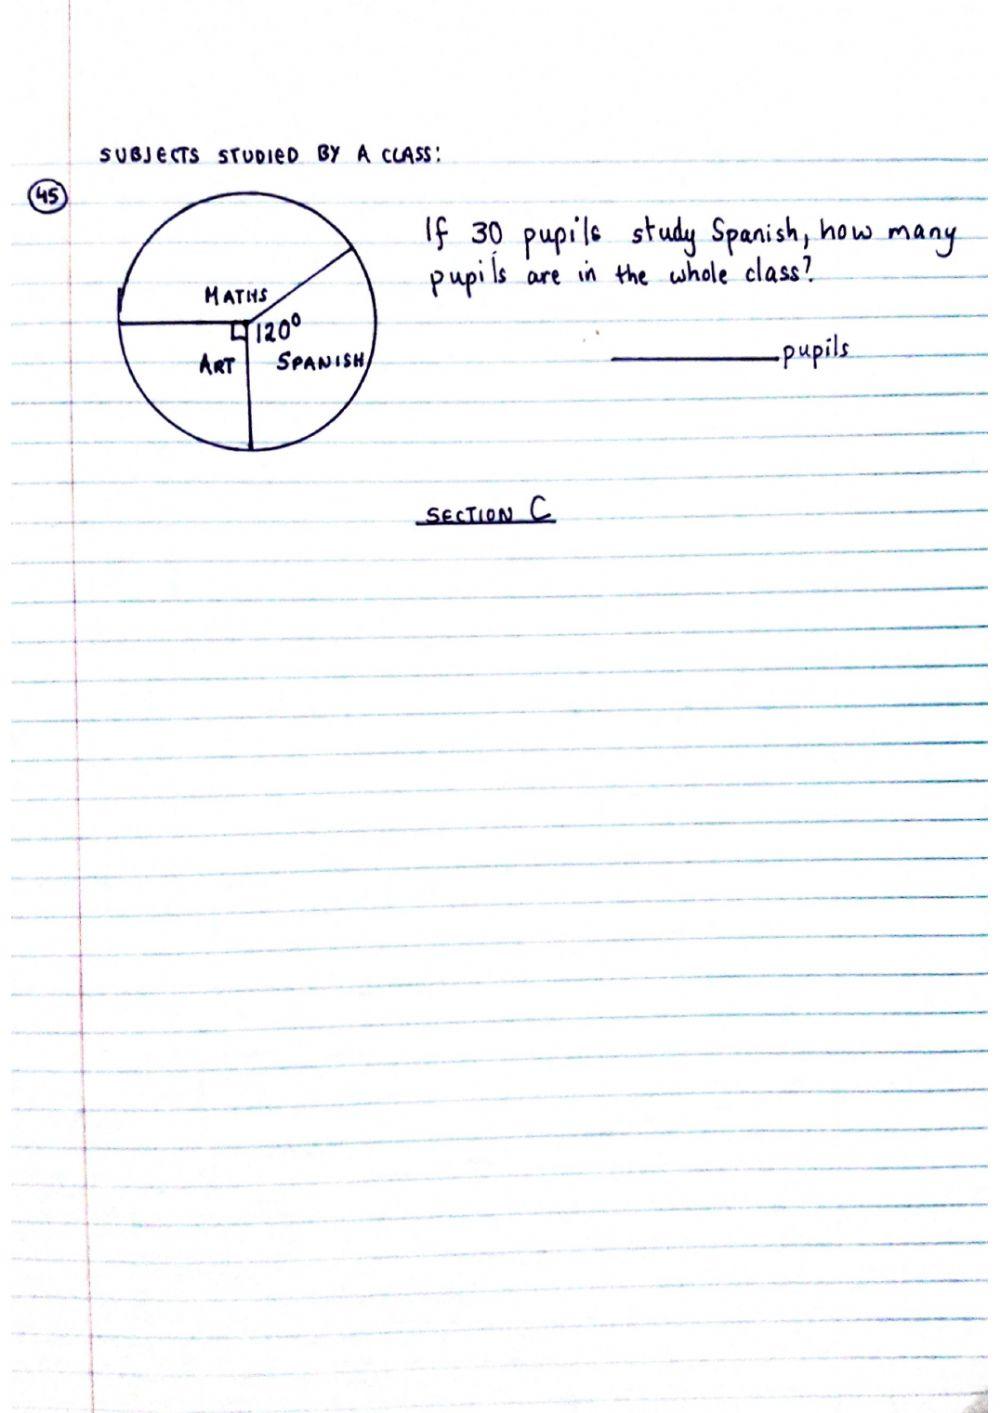 SUBJECTS STUDIED BY A CLASS:
45
If 30 pupils study Spanish, how many
pupils are in the whole class?
MATHS
120°
ART SPANISH
pupils
SECTION C